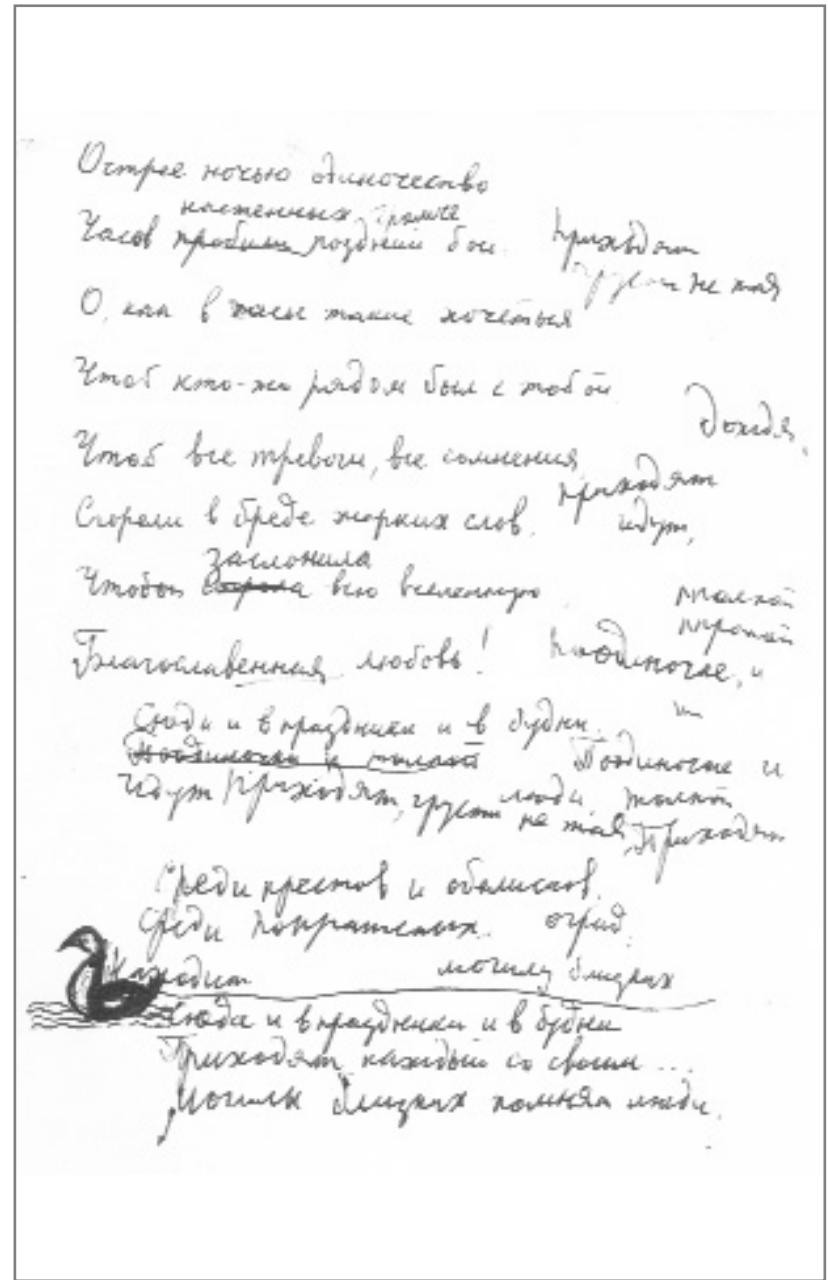 Острее ночью одиночество
настенных, громче
Часов пробили поздний бой.
Приходят
грусти не тая
О, как в часы такие хочеться
Чтоб кто-то рядом был с тобой
Чтоб все тревоги, все сомнения
приходят
Сгорели в бреде жарких слов.
идут,
заслонила
Чтобы всю вселенную
толпой
Благославенная любовь!
Поодиночке, и
Сюда и в праздники и в будни.
Поодиночке и толпой
Поодиночке и
Идут Приходят, грусти не тая
люди толпой
Приходят
Среди крестов и обелисков
Среди покрашеных оград.
Находит могилу близких
Сюда и в праздники и в будни
Приходят, каждый со своим ...
Могилы близких помнят люди.